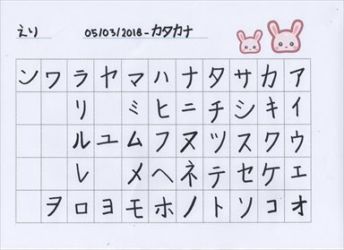 えり 05/03/2018-カタカナ
ン ワ ラ ヤ マ ハ ナ タ サ カ ア
リ ミ ヒ ニ チ シ キ イ
ル ユ ム フ ヌ ツ ス ク ウ
レ メ ヘ ネ テ セ ケ エ
ヲ ロ ヨ モ ホ ノ ト ソ コ オ